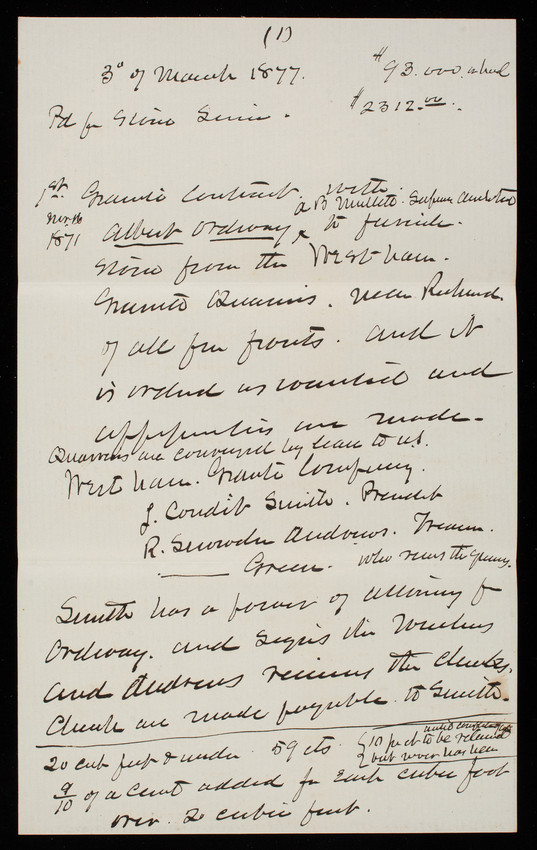 (1)
3d of March 1877. $93.000.
Pd for Stone $2312.00.
1st Granite Contract with
Nov 16 1871 Albert Ordway A B Mullett. to furnish
Stone from the West ham
Granite Quarries. near Richmond.
of all four fronts. and it
is ordered as wanted and
are made.
Quarries are conveyed by lease to U.S.
West ham. Granite Company.
J. Condit Smith. President
R. Snowden Andrews. Treasur.
Green. who runs the Quarry.
Smith has a power of attorney for
Ordway. and signs the Vouchers
and Andrews receives the checks.
Checks are made payable to Smith.
20 cub feet & under 59 cts. 10 pr ct to be retained until
but never has been
9/10 of a Cent added for each cubic foot
over. 20 cubic feet.